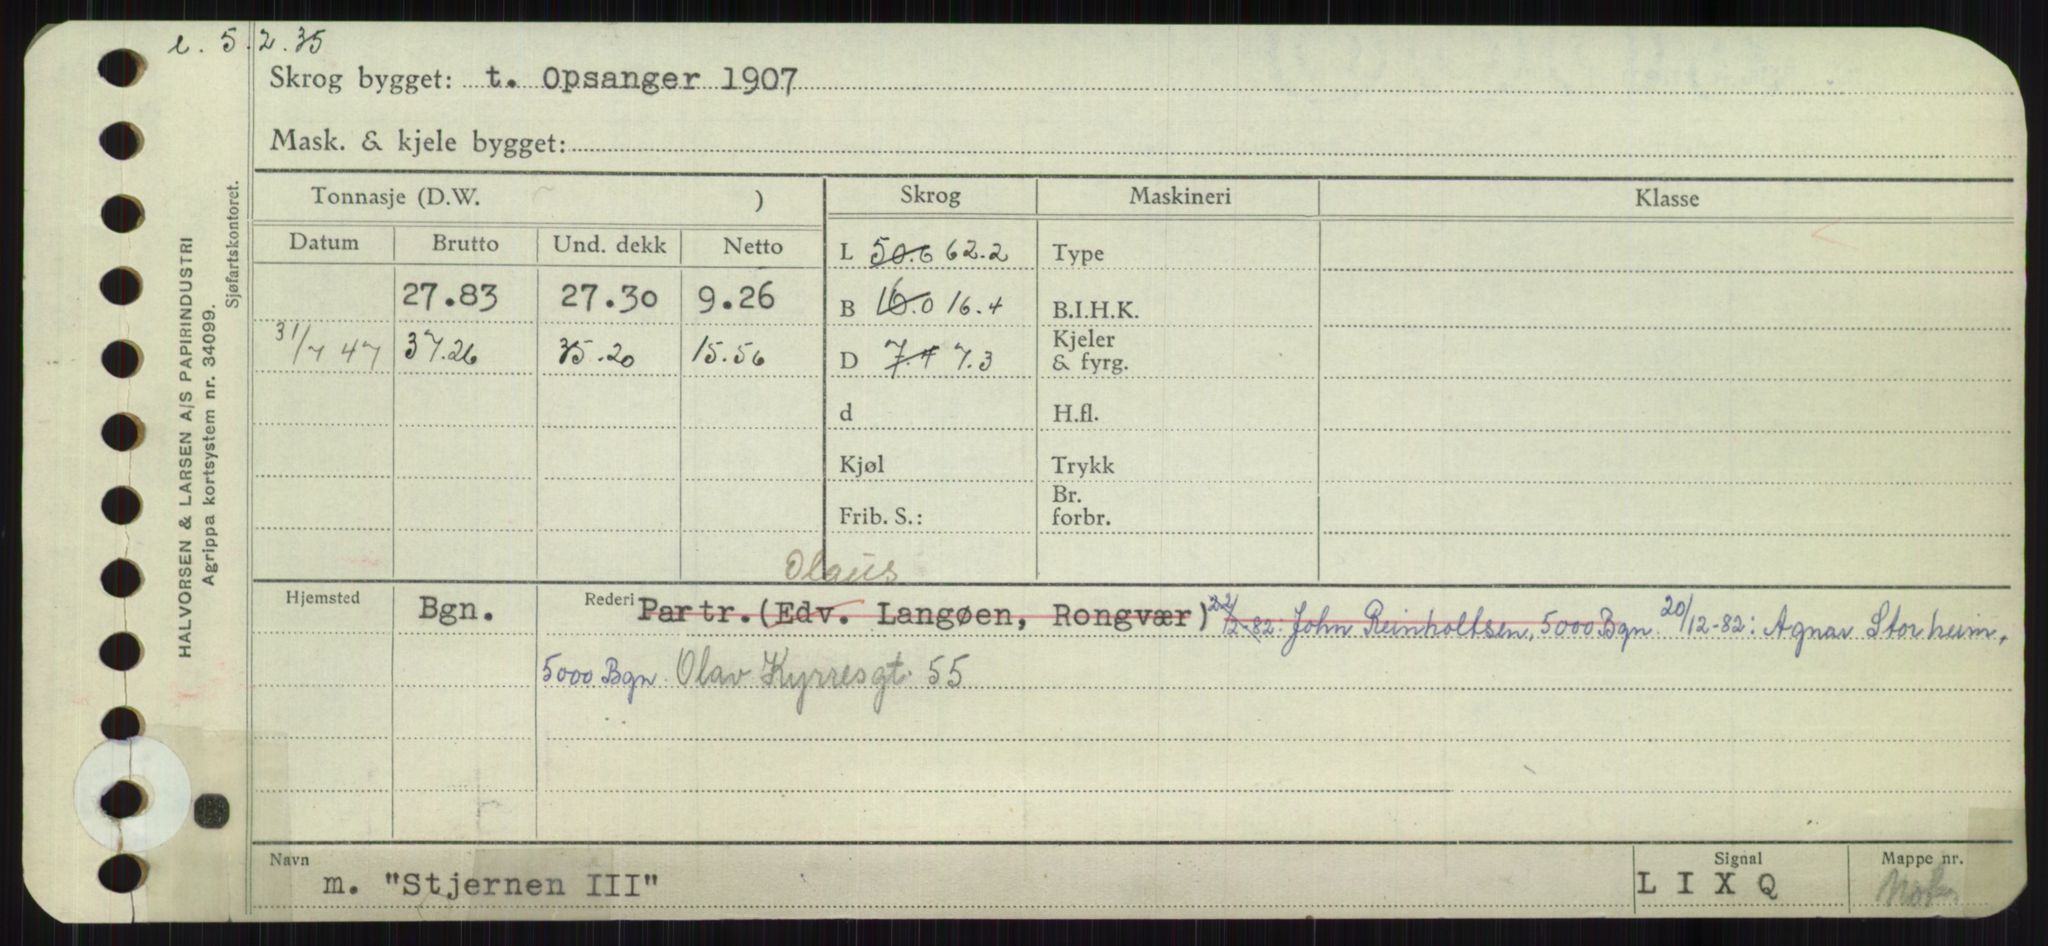 l. 5.2.35
Skrog bygget: t. Opsanger 1907
Mask. & kjele bygget:
HALVORSEN & LARSEN A/S PAPIRINDUSTRI
Agrippa kortsystem nr. 34099.
Sjøfartskontoret.
Tonnasje (D.W. ) Skrog Maskineri Klasse
Datum Brutto Und. dekk Netto
L 50.6 62.2 Type
27.83 27.30 9.26 B 16.0 16.4 B.I.H.K.
31/7 47 37.26 35.20 15.56 D 7.4 7.3 Kjeler & fyrg.
d H.fl.
Kjøl Trykk
Frib. S.: Br. forbr.
Olaus
Hjemsted Bgn. Rederi Partr. (Edv. Langøen, Rongvær) 22/12-82: John Reinholtsen, 5000 Bgn 20/12-82: Agnar Storheim,
5000 Bgn. Olav Kyrresgt. 55
Navn Signal Mappe nr.
m. "Stjernen III" L I X Q